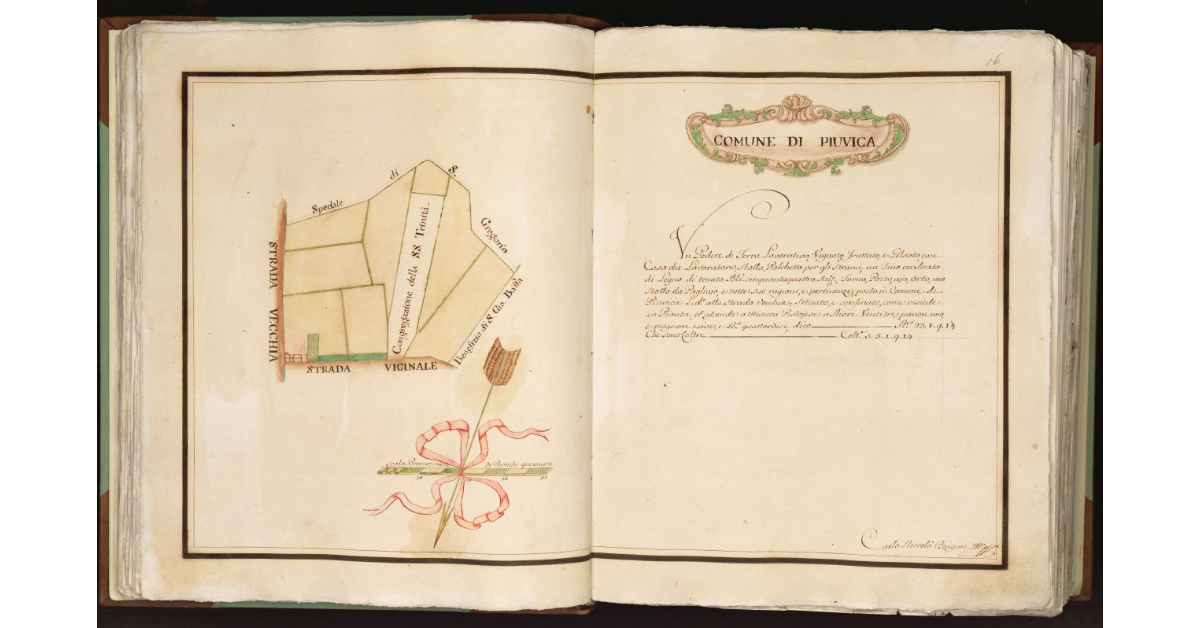 Spedale di S. Gregorio
STRADA VECCHIA
Congregazione della SS. Trinità
Benefizio di S. Gio. Batta
STRADA VICINALE
Scala di Pertiche quaranta
16
COMUNE DI PIUVICA
Un Podere di Terra Lavorativa, Vignata, fruttata, e Gelsata con
Casa da Lavoratore, Stalla, per gli Strami, un Tino cerchiato
di Legno di tenuta cinquantaquattro Forno, Pozzo, aja, Orto, uno
Stollo da Pagliajo, e tutte sue ragioni, e pertinenze, posto in Comune di
Piuvica L. d. alla Strada Vecchia, Situato, e confinato, come risiede
in Pianta, et ascende a misura Pistojese a Staiori Ventitre, panora uno
e pugnora nove, e quattordici, dico 23. 1. 9. 14
Che sono Coltre Colt. 5. 3. 1. 9. 14
Carlo Niccolò Biagini